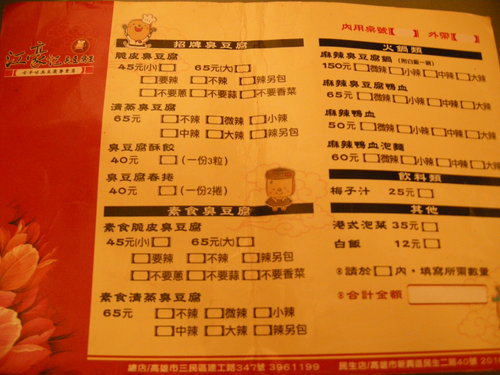 江豪記臭豆腐王
內用桌號 外帶
招牌臭豆腐
脆皮臭豆腐
45元(小)□ 65元(大)□
□要辣 □不辣 □辣另包
□不要蔥 □不要蒜 □不要香菜
清蒸臭豆腐
65元 □不辣 □微辣 □小辣
□中辣 □大辣 □辣另包
臭豆腐酥餃
40元 □ (一份3粒)
臭豆腐春捲
40元 □ (一份2捲)
素食臭豆腐
素食脆皮臭豆腐
45元(小)□ 65元(大)□
□要辣 □不辣 □辣另包
□不要蔥 □不要蒜 □不要香菜
素食清蒸臭豆腐
65元 □不辣 □微辣 □小辣
□中辣 □大辣 □辣另包
火鍋類
麻辣臭豆腐鍋 (附白飯一碗)
150元□微辣□小辣□中辣□大辣
麻辣臭豆腐鴨血
65元□微辣□小辣□中辣□大辣
麻辣鴨血
50元□微辣□小辣□中辣□大辣
麻辣鴨血泡麵
60元□微辣□小辣□中辣□大辣
飲料類
梅子汁 25元□
其他
港式泡菜 35元□
白飯 12元□
請於□內,填寫所需數量
合計金額
總店/高雄市三民區建工路347號 3961199
民生店/高雄市新興區民生二路40號 201